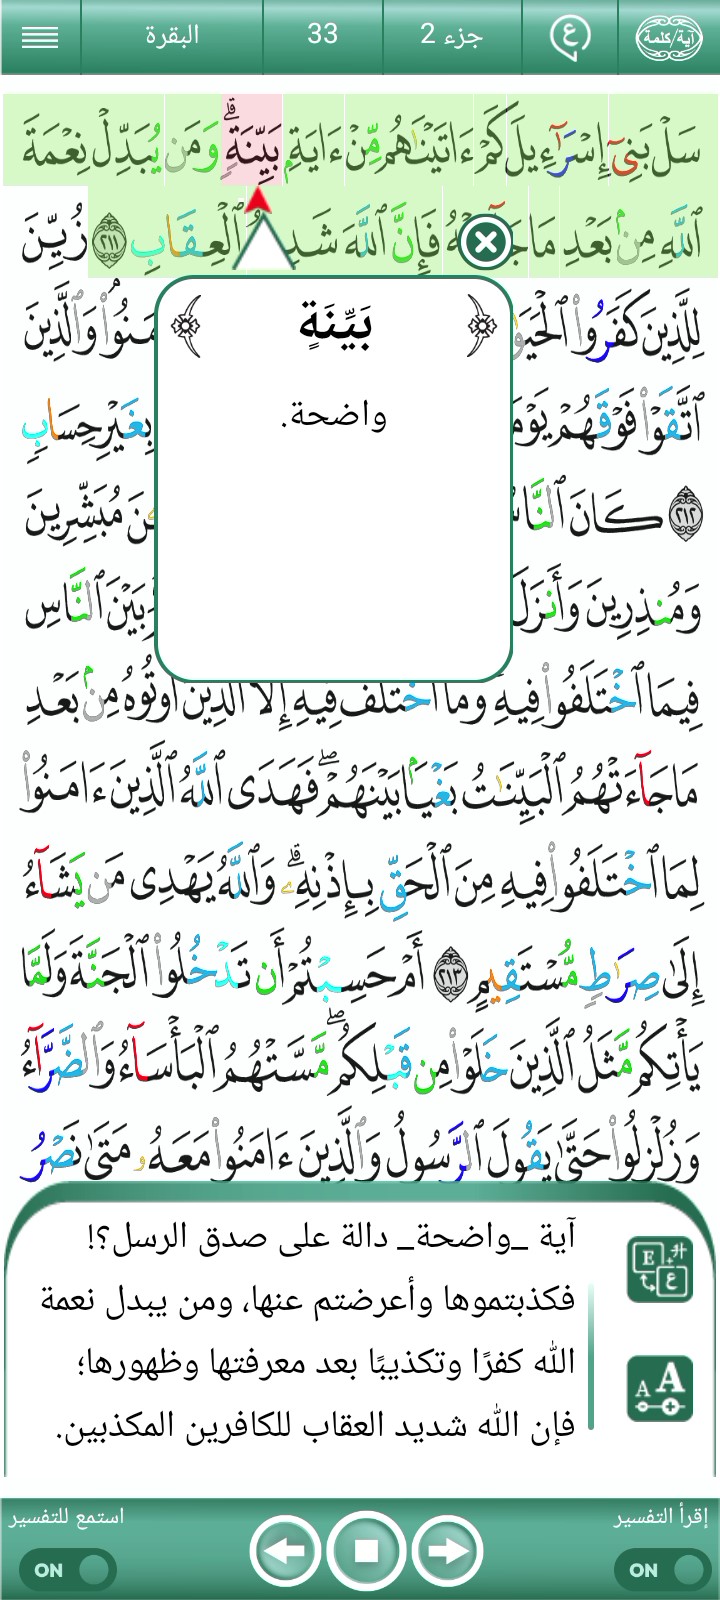 آية/كلمة
ع
جزء 2
33
البقرة
سَلْ بَنِىٓ إِسْرَٰٓءِيلَ كَمْ ءَاتَيْنَٰهُم مِّنْ ءَايَةٍۭ بَيِّنَةٍۗ وَمَن يُبَدِّلْ نِعْمَةَ
ٱللَّهِ مِنۢ بَعْدِ مَا فَإِنَّ ٱللَّهَ ٱلْعِقَابِ ٢١١ زُيِّنَ
بَيِّنَةٍ
واضحة.
لِلَّذِينَ كَفَرُوا۟ وَٱلَّذِينَ
ٱتَّقَوْا۟ فَوْقَهُمْ بِغَيْرِ حِسَابٍ
٢١٢ كَانَ مُبَشِّرِينَ
وَمُنذِرِينَ ٱلنَّاسِ
فِيمَا ٱخْتَلَفُوا۟ فِيهِ وَمَا ٱخْتَلَفَ فِيهِ إِلَّا ٱلَّذِينَ أُوتُوهُ مِنۢ بَعْدِ
مَا جَآءَتْهُمُ ٱلْبَيِّنَٰتُ بَغْيًۢا بَيْنَهُمْۖ فَهَدَى ٱللَّهُ ٱلَّذِينَ ءَامَنُوا۟
لِمَا ٱخْتَلَفُوا۟ فِيهِ مِنَ ٱلْحَقِّ بِإِذْنِهِۦۗ وَٱللَّهُ يَهْدِى مَن يَشَآءُ
إِلَىٰ صِرَٰطٍ مُّسْتَقِيمٍ ٢١٣ أَمْ حَسِبْتُمْ أَن تَدْخُلُوا۟ ٱلْجَنَّةَ وَلَمَّا
يَأْتِكُم مَّثَلُ ٱلَّذِينَ خَلَوْا۟ مِن قَبْلِكُمۖ مَّسَّتْهُمُ ٱلْبَأْسَآءُ وَٱلضَّرَّآءُ
وَزُلْزِلُوا۟ حَتَّىٰ يَقُولَ ٱلرَّسُولُ وَٱلَّذِينَ ءَامَنُوا۟ مَعَهُۥ مَتَىٰ نَصْرُ
آية _واضحة_ دالة على صدق الرسل؟!
فكذبتموها وأعرضتم عنها، ومن يبدل نعمة
الله كفرًا وتكذيبًا بعد معرفتها وظهورها؛
فإن الله شديد العقاب للكافرين المكذبين.
E
ع
A A
إقرأ التفسير
ON
استمع للتفسير
ON